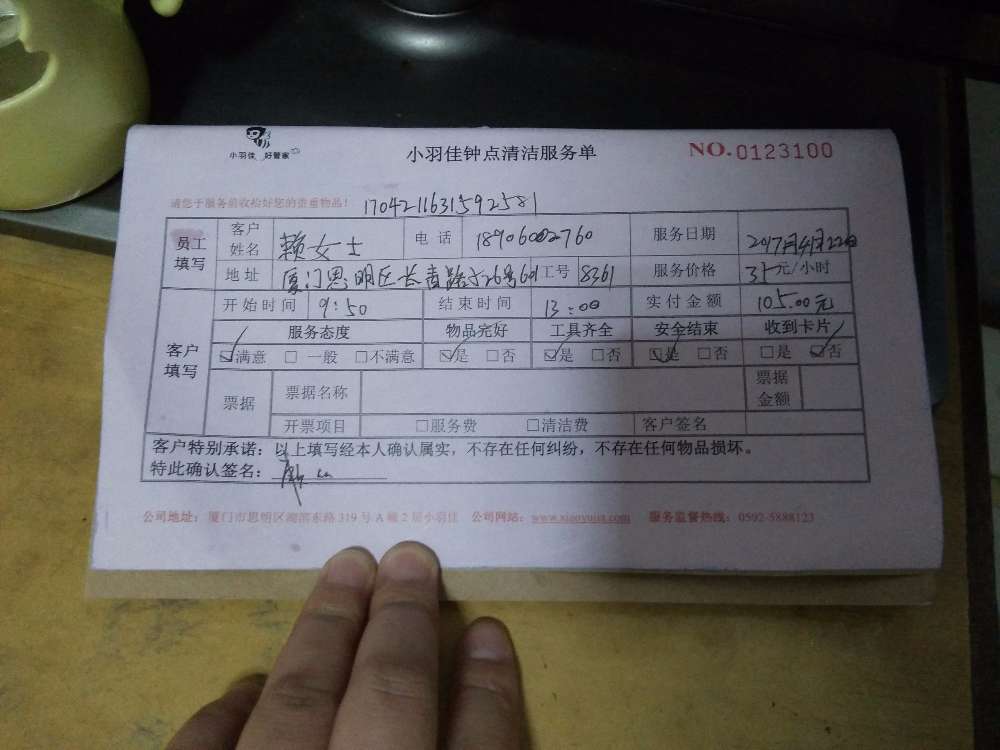 小羽佳 好管家
小羽佳钟点清洁服务单
NO.0123100
请您于服务前收拾好您的贵重物品! 1704211631592581
员工填写 客户姓名 赖女士 电话 18906002760 服务日期 2017年4月22日
地址 厦门思明区长青路 工号 8361 服务价格 35元/小时
客户填写 开始时间 9:50 结束时间 13:00 实付金额 105.00元
服务态度 物品完好 工具齐全 安全结束 收到卡片
☑满意 □一般 □不满意 ☑是 □否 ☑是 □否 ☑是 □否 □是 ☑否
票据 票据名称 票据金额
开票项目 □服务费 □清洁费 客户签名
客户特别承诺:以上填写经本人确认属实,不存在任何纠纷,不存在任何物品损坏。
特此确认签名:
公司地址:厦门市思明区湖滨东路 319 号 A 幢 2 层小羽佳 公司网站:www.xiaoyujia.com 服务监督热线:0592-5888123